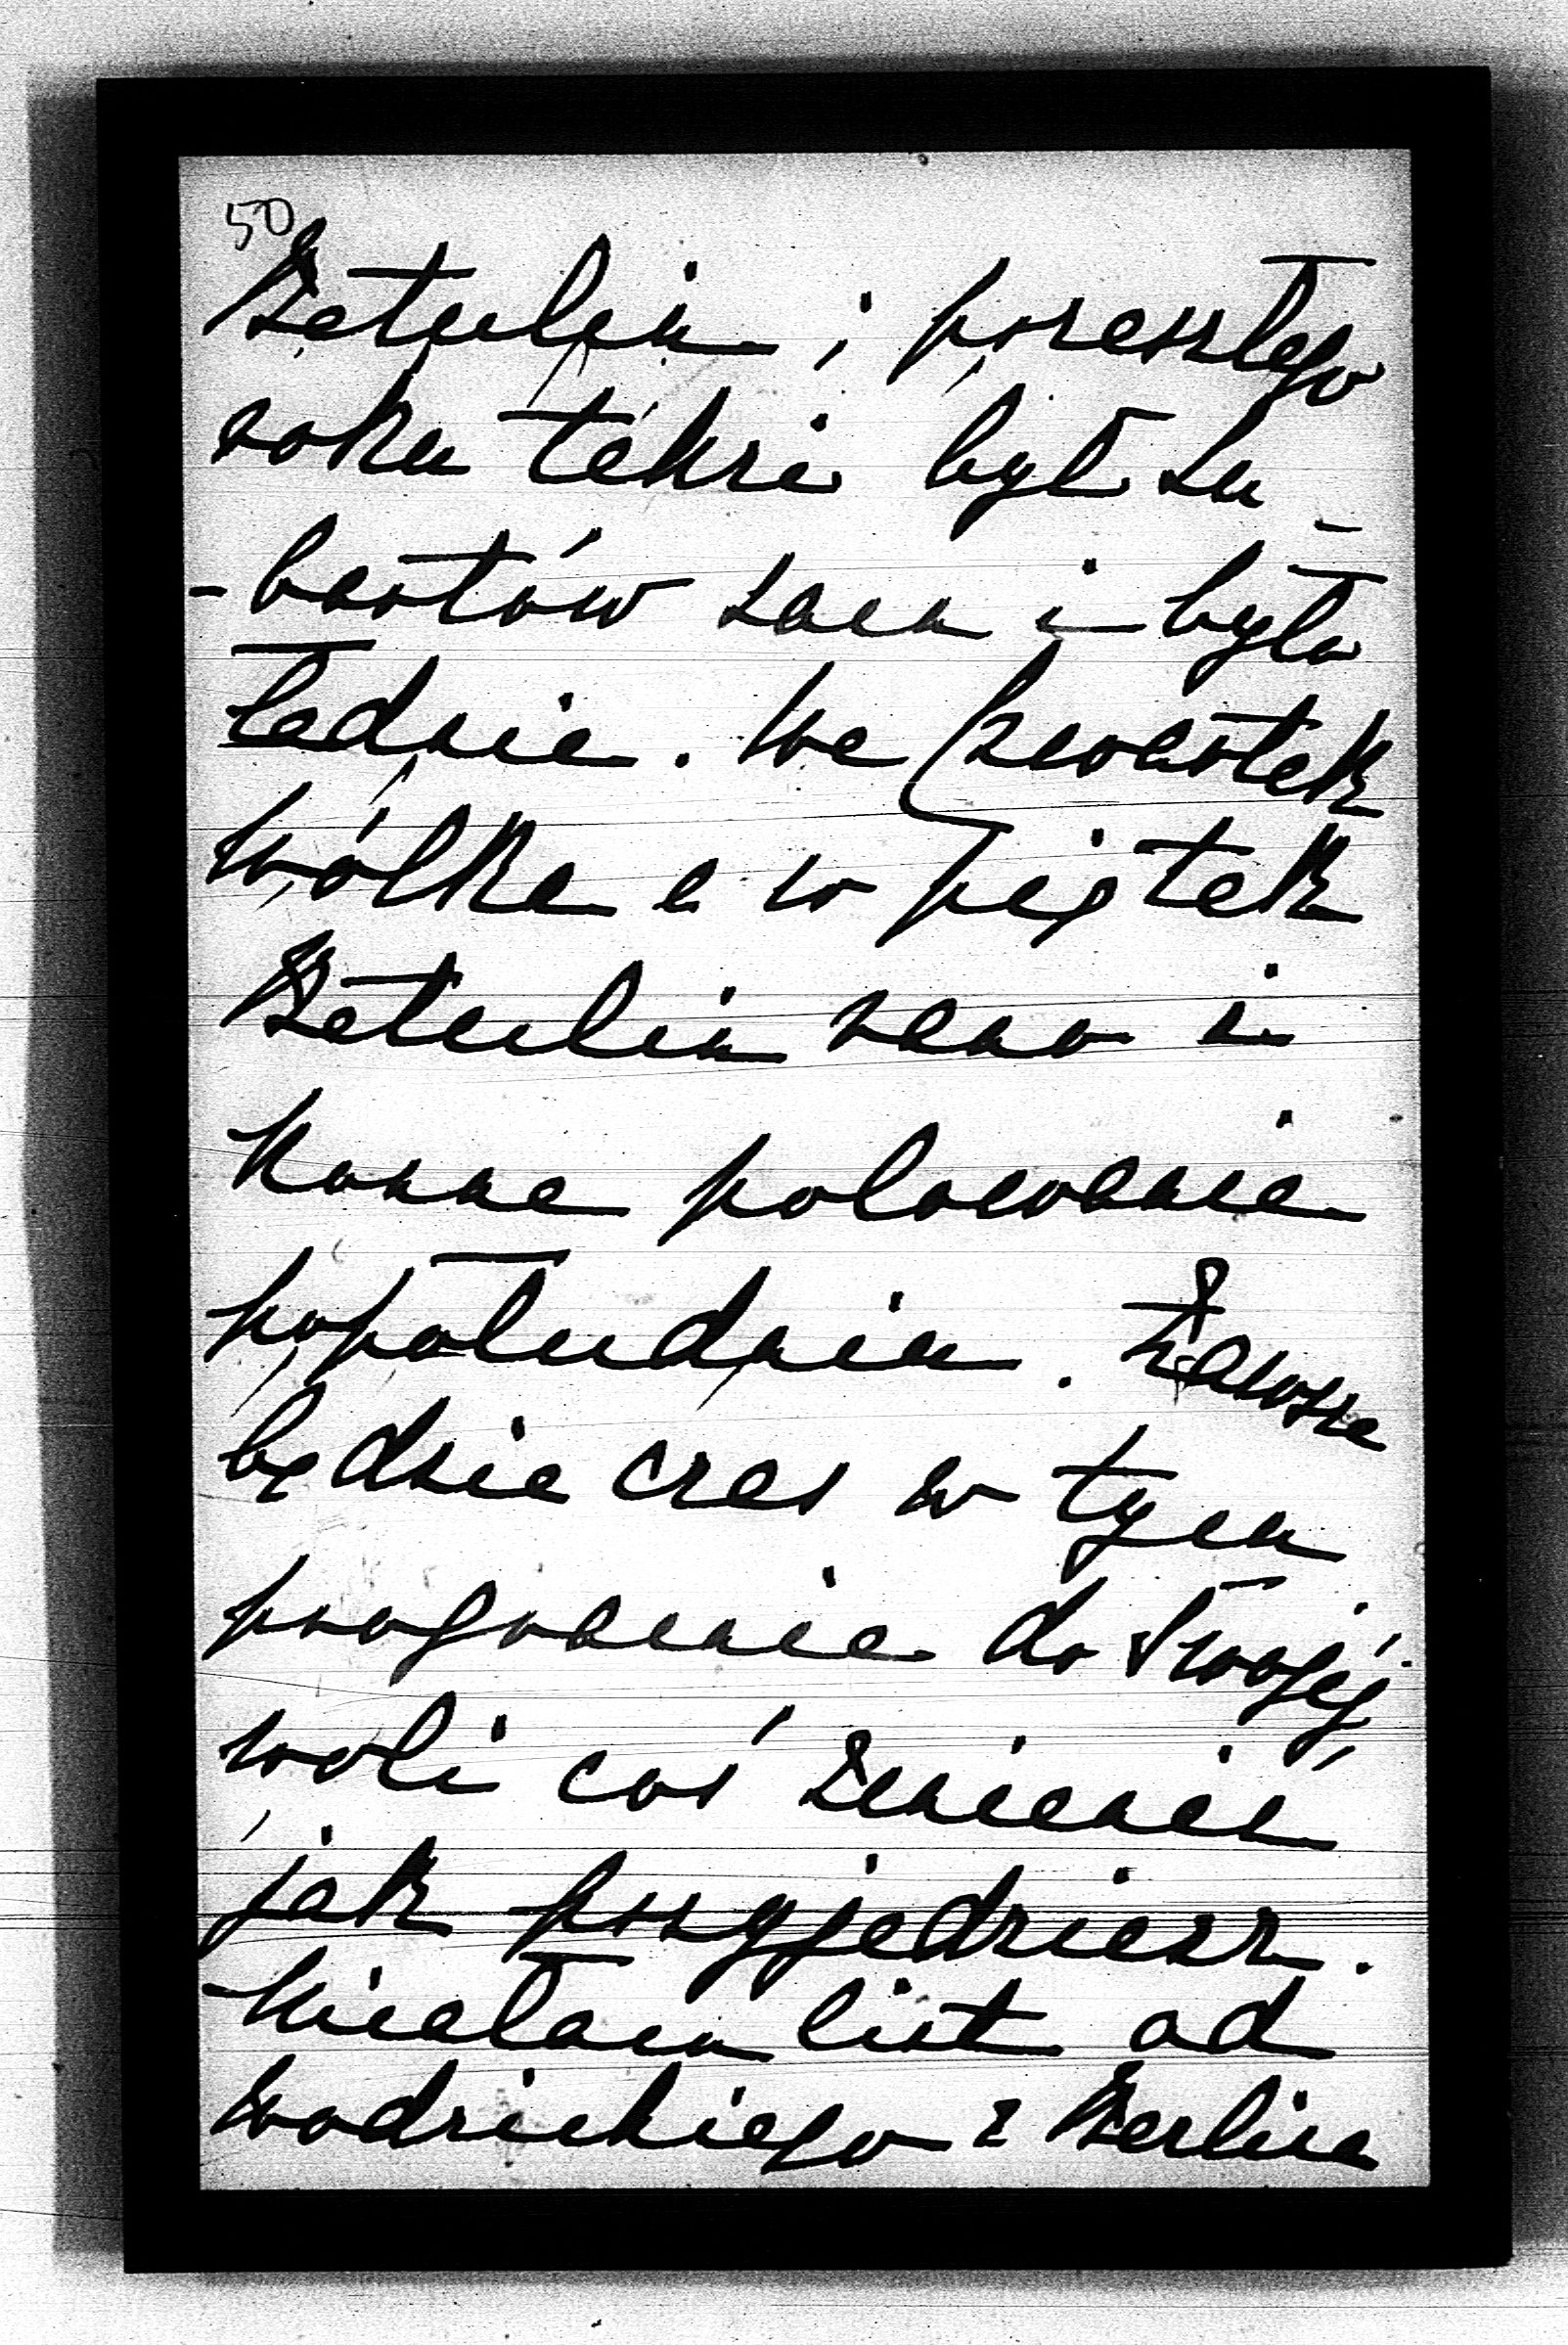 50
Betulin; przeszłego
roku tekże był Lu-
-bartów sam i było
ładnie. We czwartek
Wólka a w piątek
Betulin rano i
konne polowanie
popołudniu. Zawsze
będzie czas w tym
programie do Twojéj
woli coś zmienić
jak przyjedziesz.
Miałam list od
Wodzickiego z Berlina